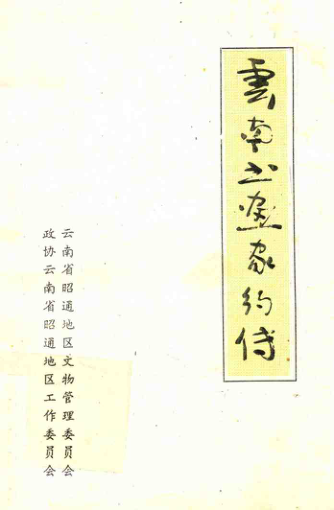 雲南书畫家约传
云南省昭通地区文物管理委员会
政协云南省昭通地区工作委员会